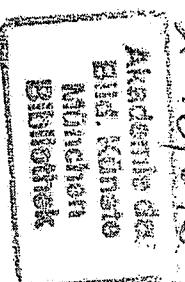 Akademie der
Bild. Künste
München
Bibliothek